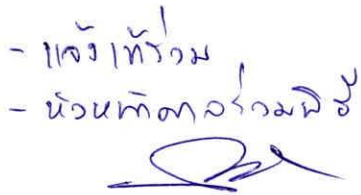 - แจ้งเข้าร่วม
- หัวหน้าศาลร่วมพิธี